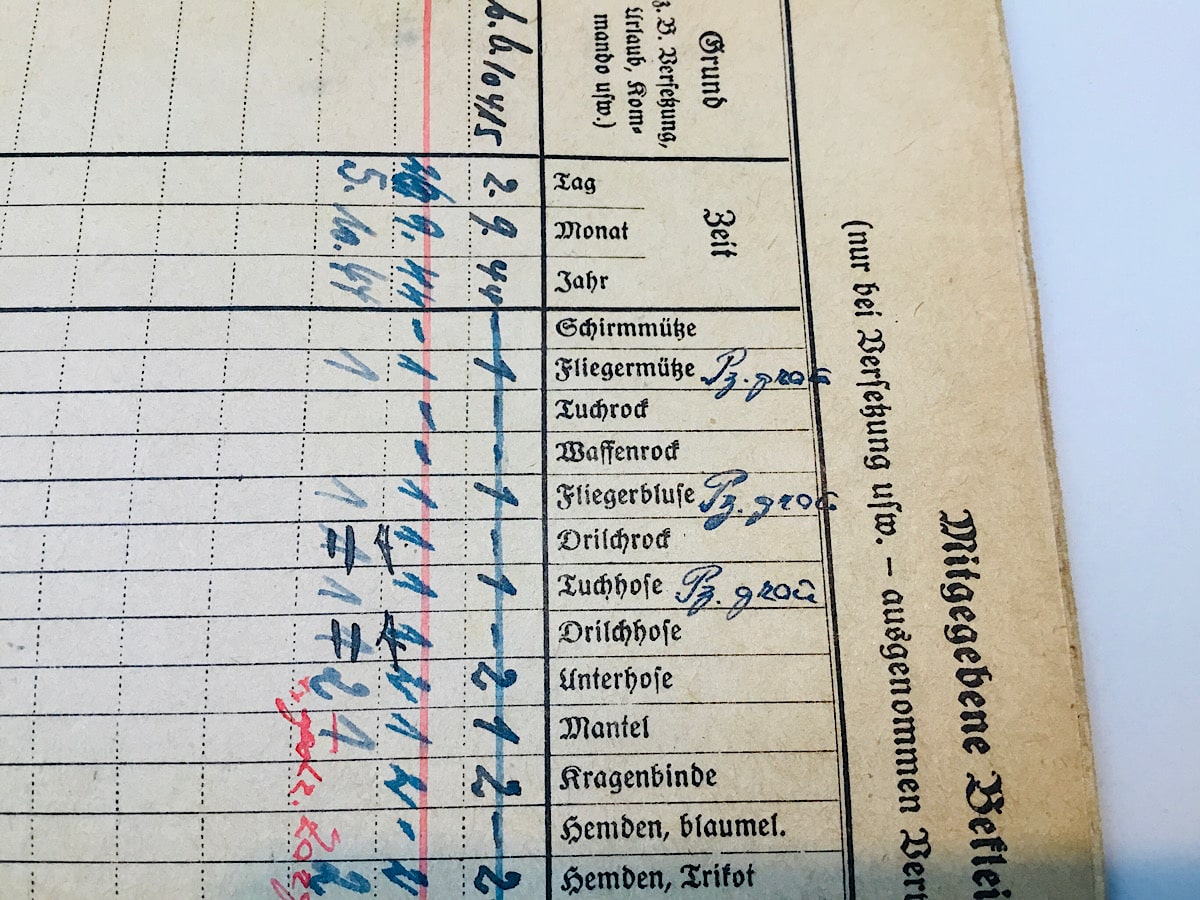 Mitgegebene Beklei
(nur bei Versetzung usw. – ausgenommen Vert
Grund
z. B. Versetzung,
Urlaub, Kom-
mando usw.)
Zeit
Tag 2. 9. 5.
Monat 9. 9. 10.
Jahr 44 44 44
Schirmmütze – -
Fliegermütze Pz. grau 1 1 1
Tuchrock - -
Waffenrock - -
Fliegerbluse Pz. grau 1 1 1
Drilchrock - 1 1
Tuchhose Pz. grau 1 1 1
Drilchhose - 1 1
Unterhose 2 2 2
Mantel 1 1 1
Kragenbinde 2 2
Hemden, blaumel. – -
Hemden, Trikot 2 2 2